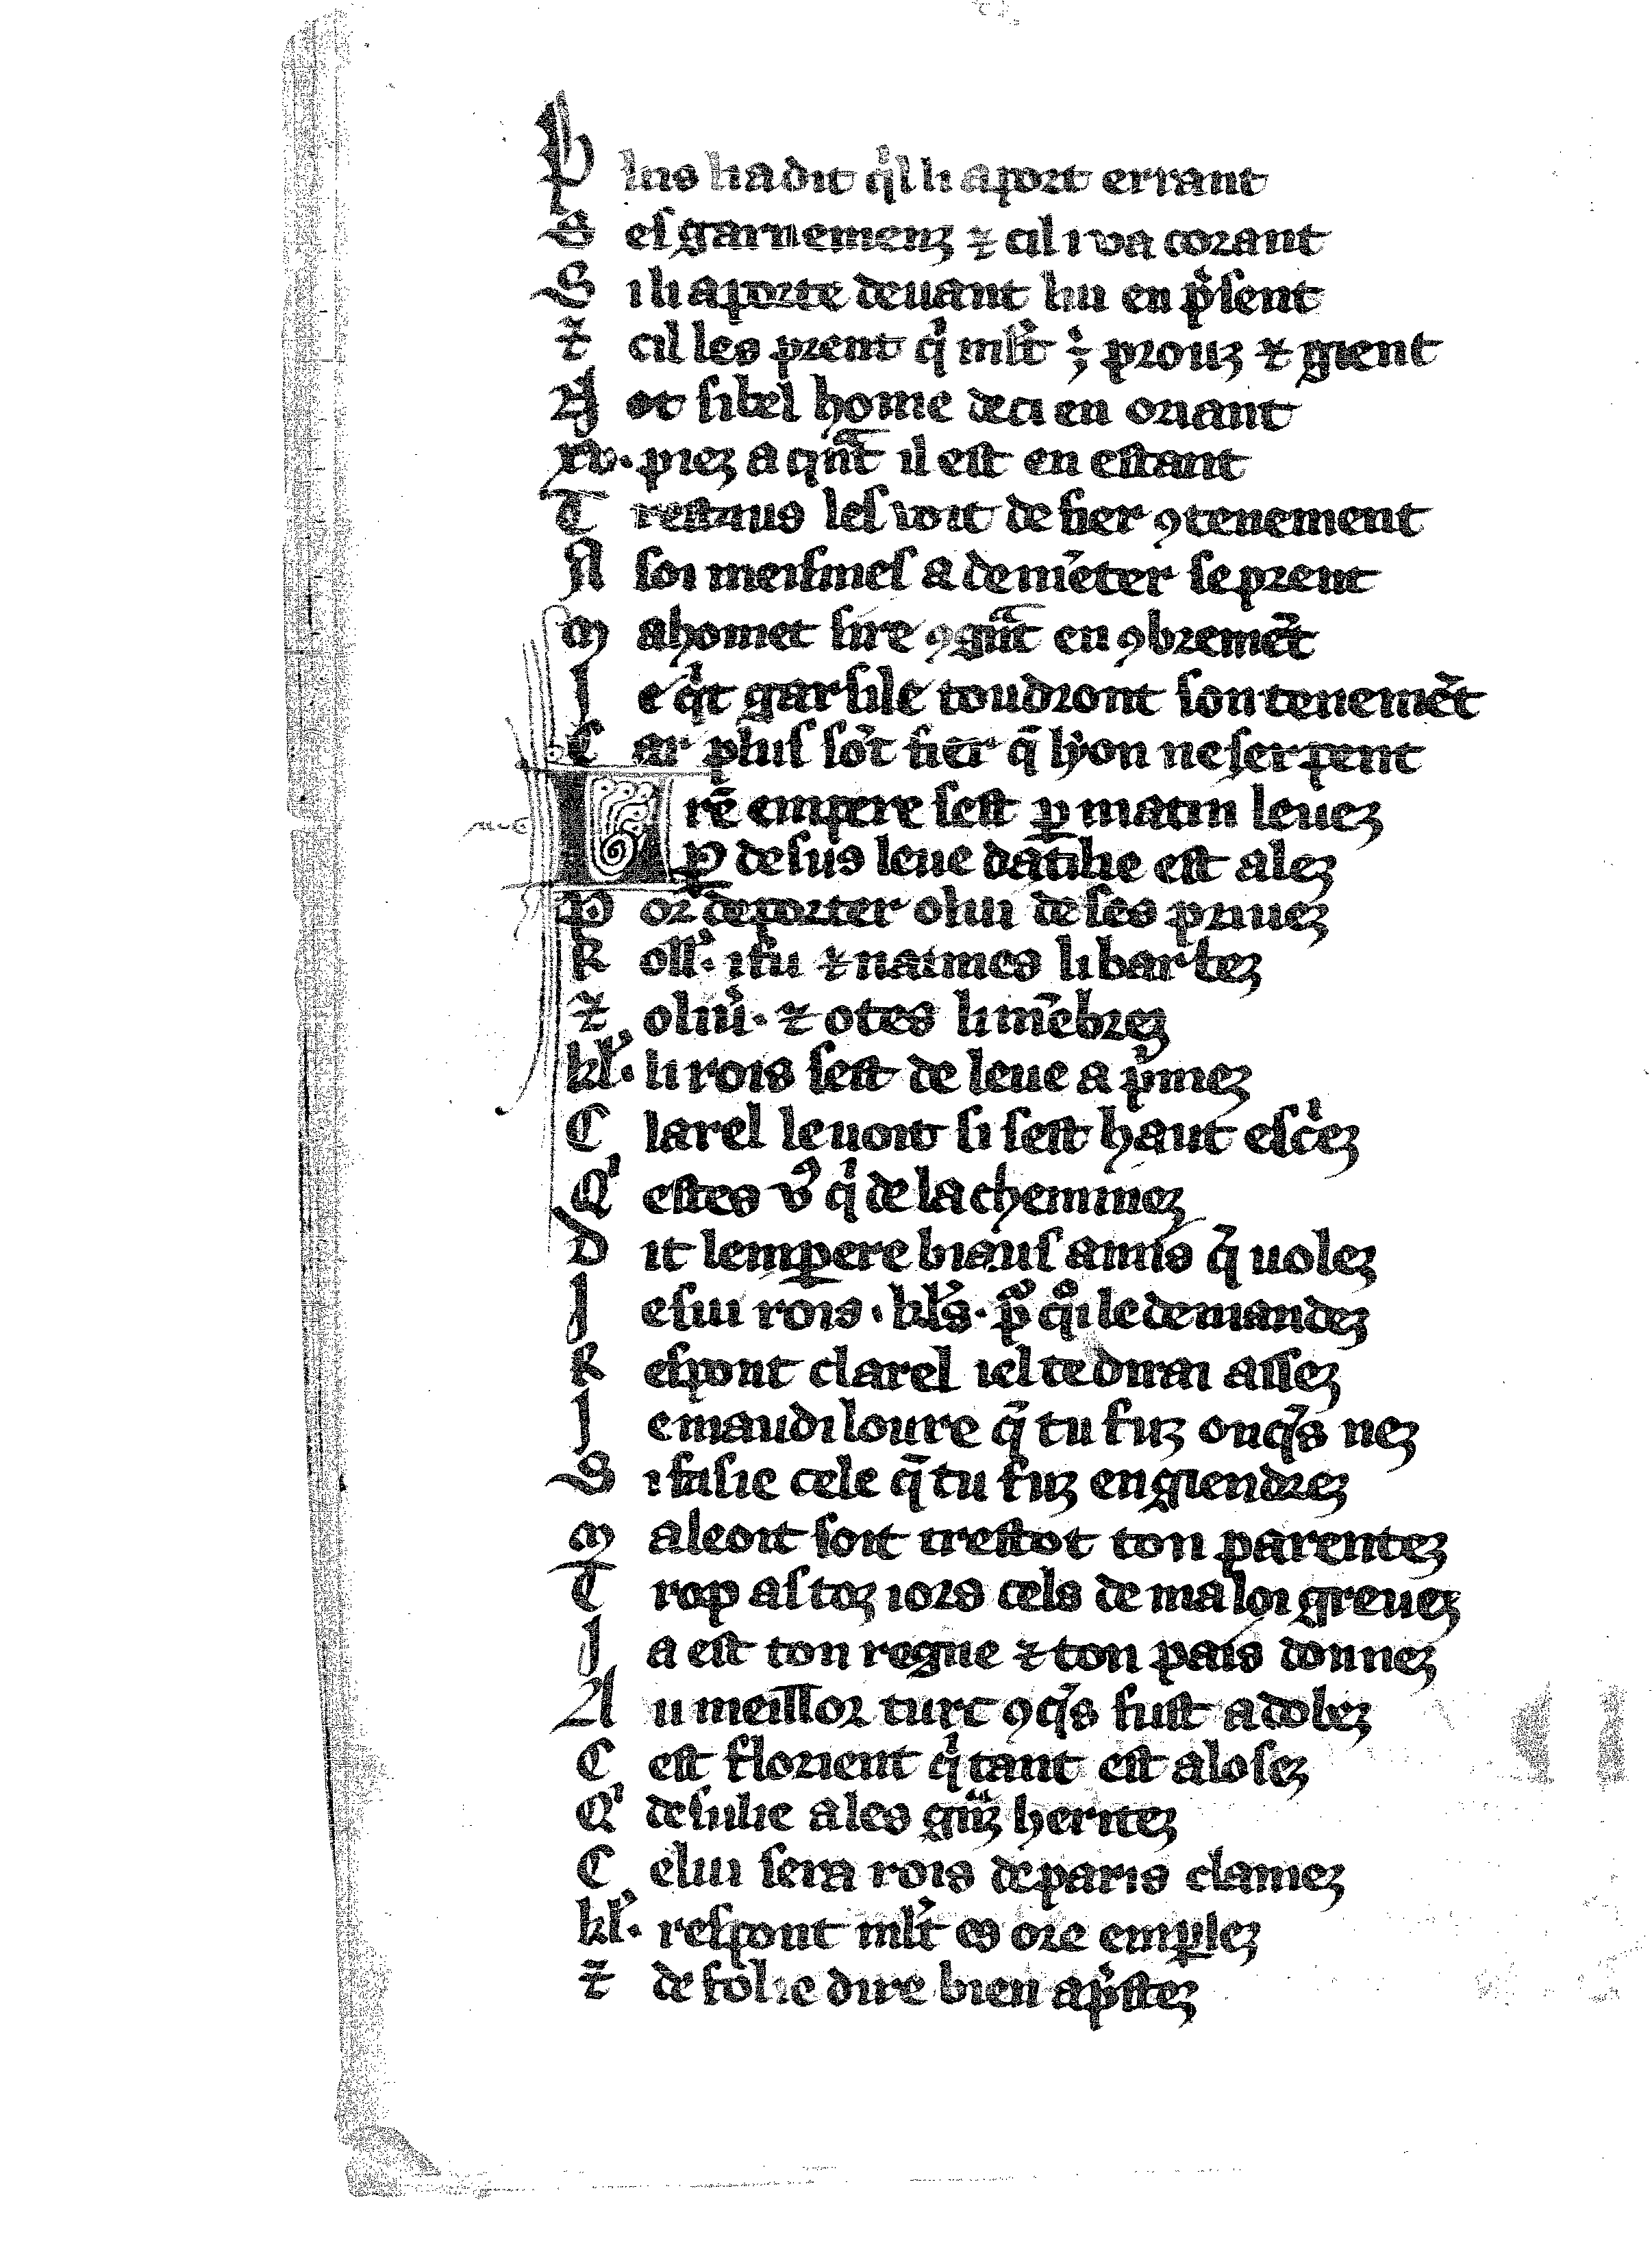 P luis li a dit qͥl li aport errant
S es garnemenz ⁊ cil i va corant
S i li aporte deuant lui en p̾sent
⁊ cil les prent qͥ ml̾t ÷ prouz ⁊ gient
N ot si bel home deci en oriant
xv. piez a qͣnt il est en estant
T restouz les uoit de fier ꝯtenement
A soi meismes a dem̄eter se prent
M ahomet sire ꝯ gͣnt encꝯbremēt
J e qͥt garsile toudront son tenemēt
C ar plus sōt fier q̄ lyon ne serpent
L rē empere sest ꝑ matin leuez
ꝑ desus leue dātilie est alez
P or deporter o lui de ses priuez
R oll̾. ⁊ naimes li barbez
⁊ oliu̾. ⁊ otes li mēbrez
kl̾. li rois sest de leue apͥmez
C larel le uoit si sest haut escͥez
Qͥ estes vͦ qͥ de la cheminez
D it lempere biaus amis q̄ uolez
J e sui rois .kl̾s. pͦ qͦi le demandez
R espont clarel iel te dirai assez
J e maudi loure q̄ tu fuz onq̄s nez
S i fas ie cele q̄ tu fuz engiendrez
M aleoit soit trestot ton parentez
T rop as toz iors cels de ma loi greuez
J a est ton regne ⁊ ton pais donnez
A u meillor turc ꝯq̄s fust adobez
C est florient qͥ tant est alosez
Qͥ de sulie a les gͣnz heritez
C elui sera rois de paris clamez
kl̾. respont ml̾t es ore emꝑlez
⁊ de folie dire bien ap̾stez